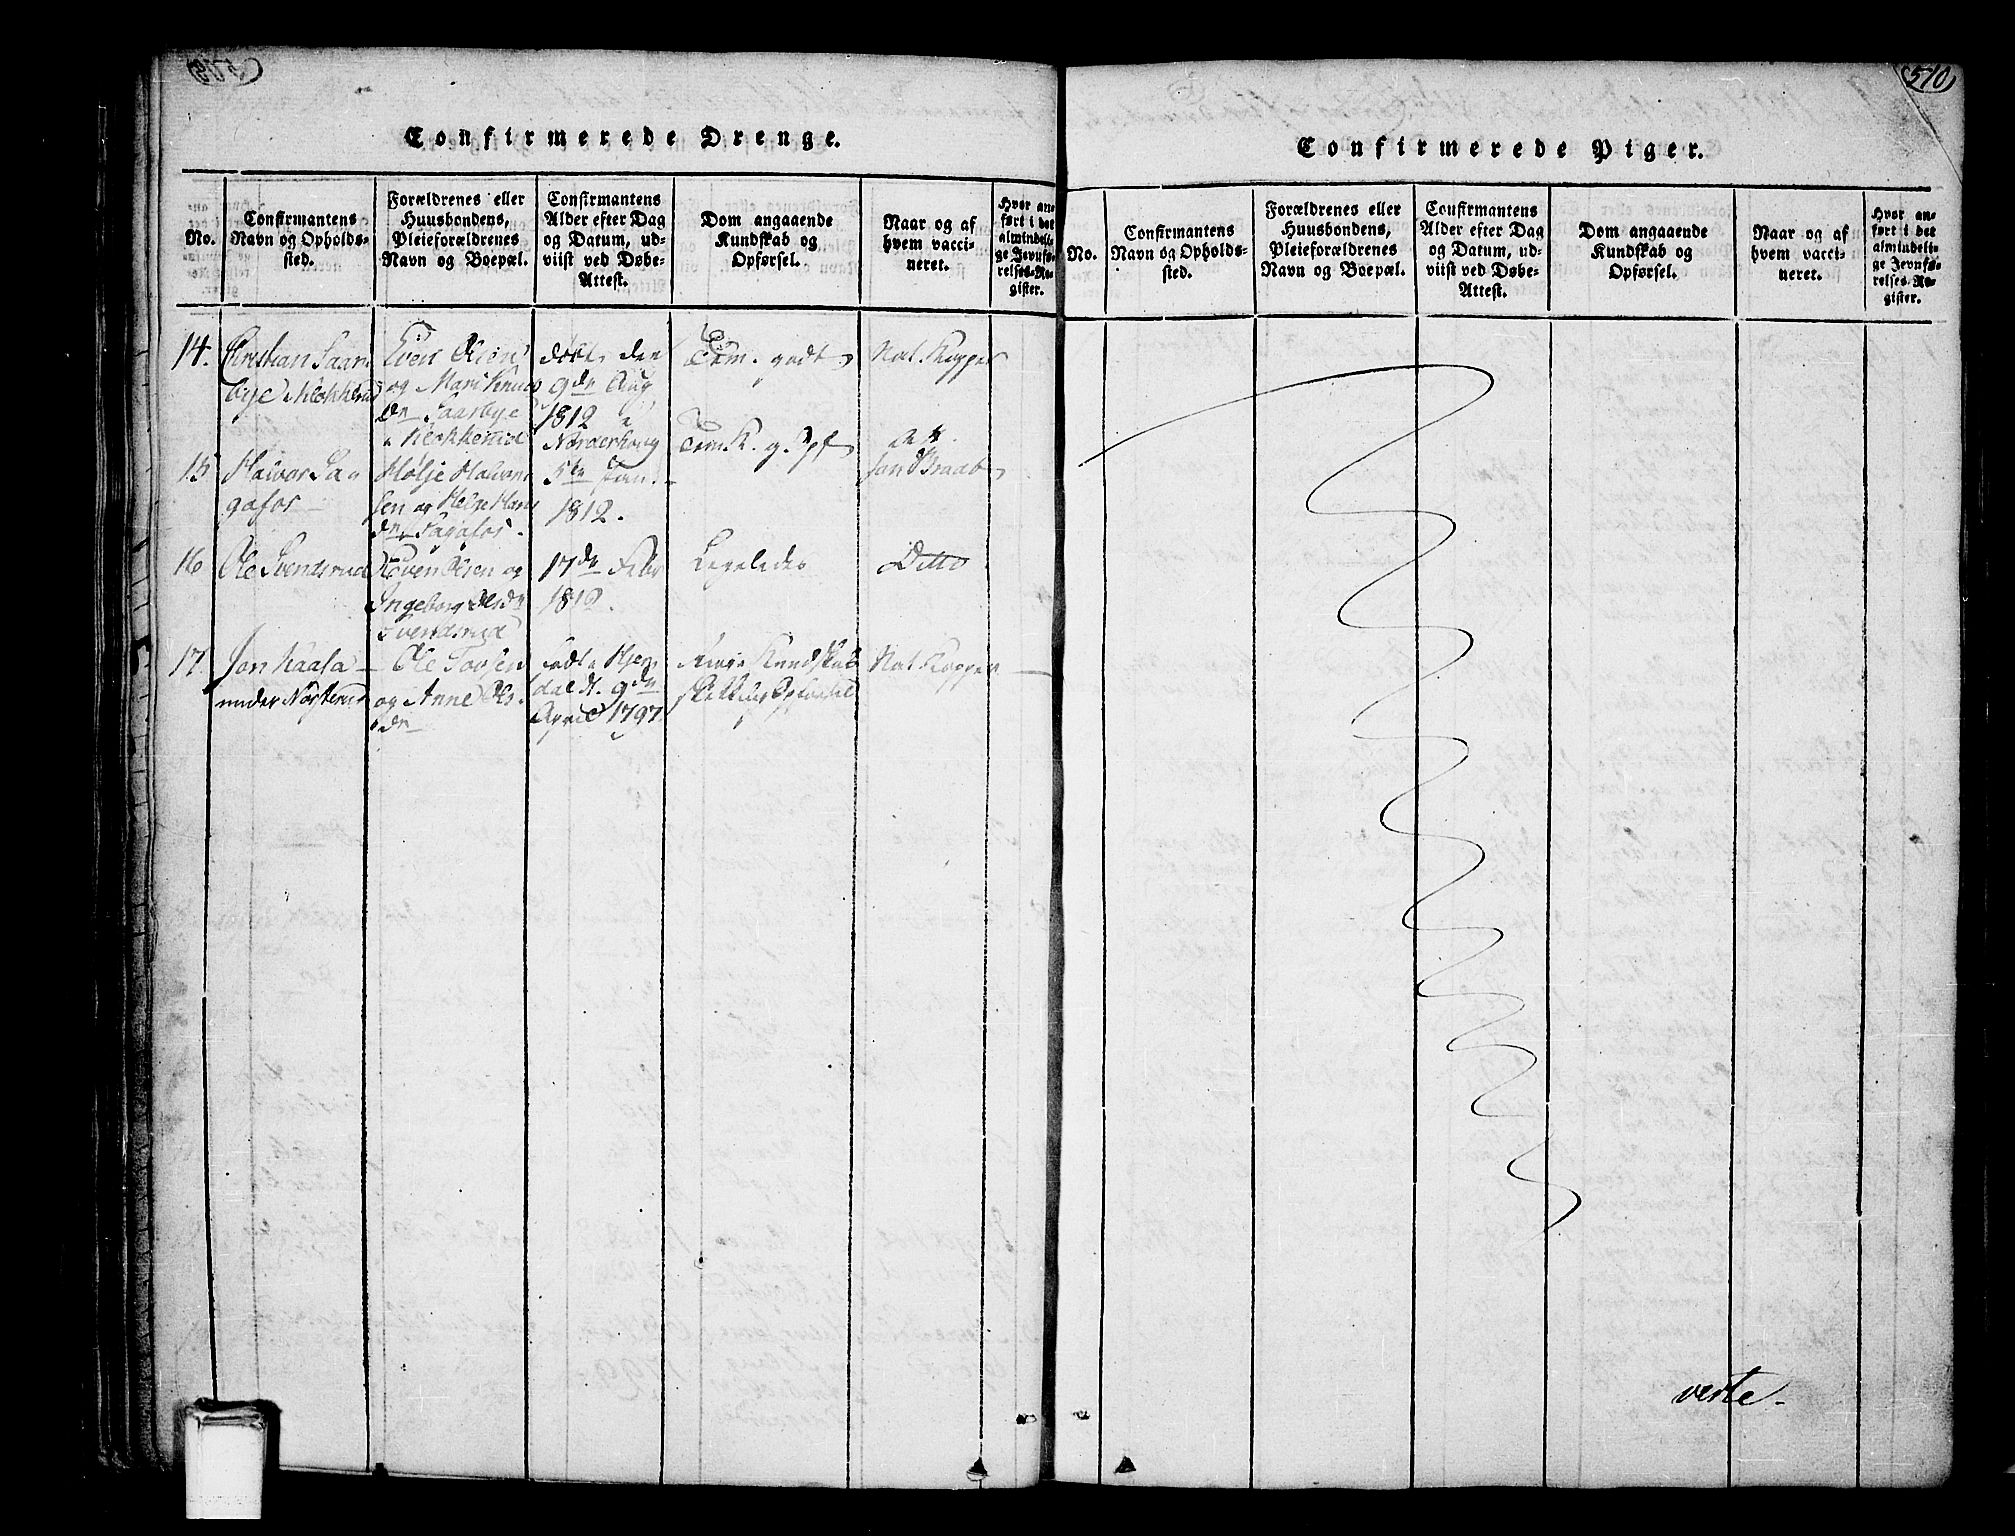 510
Confirmerede Drenge.
No.
Confirmantens
Navn og Opholds-
sted.
Forældrenes eller
Huusbondens,
Pleieforældrenes
Navn og Boepæl.
Confirmantens
Alder efter Dag
og Datum, ud-
viist ved Døbe-
Attest.
Dom angaaende
Kundskab og
Opførsel.
Naar og af
hvem vacci-
neret.
Hvor an-
ført i det
almindeli-
ge Jevnfø-
relses-Re-
gister.
14.
Christian Saar
bye
og Mari Knuds
dn Saarbye
døbt den
9de Aug
1812
Norderhoug
Tem. godt
Nat. Kopper
15
Halvor Sa
gafos
Holje Halvor
sen og Helge Hans
dn Sagafos.
5te Jan.
1812.
Tem. K. g. Opf
16
Ole Svendsrud
Even Olsen og
Ingeborg Olsdn
Svendsrud
17de Febr
1812.
Ligeledes
Ditto
17.
Jon Kaasa
under
Ole
og Anne Ols
dn
9de
April 1797
Kundskab
Nat Kopper
Confirmerede Piger.
No.
Confirmantens
Navn og Opholds-
sted.
Forældrenes eller
Huusbondens,
Pleieforældrenes
Navn og Boepæl.
Confirmantens
Alder efter Dag
og Datum, ud-
viist ved Døbe-
Attest.
Dom angaaende
Kundskab og
Opførsel.
Naar og af
hvem vacci-
neret.
Hvor an-
ført i det
almindeli-
ge Jevnfø-
relses-Re-
gister.
verte.